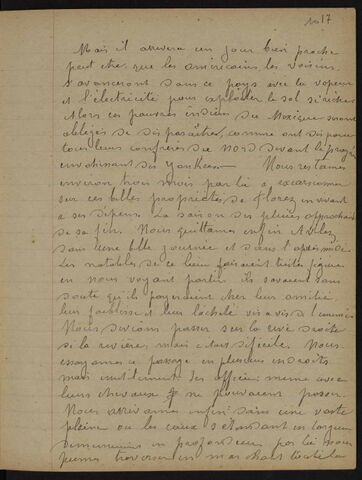 17
Mais il arrivera un jour bien proche
peut être, que les américains les voisins
s'avanceront dans ce pays avec la vapeur
et l'électricité pour exploiter le sol si riche
Alors ces pauvres indiens du Mexique seront
obligés de disparaître, comme ont disparu
tous leurs confrères du nord devant le progrès
envahissant des Yankees — Nous restames
environ trois mois par là a excursionner
sur ces belles propriétés de florez en vivant
a ses dépens. La saison des pluies approchait
de sa fin. Nous quittames enfin
dans une belle journée et dans l'après midi.
Les notables de ce lieu faisaient tristes figures
en nous voyant partir ils savaient sans
doute qu'ils payeraient cher leur amitié
leur faiblesse et leur lâcheté vis a vis de l'ennemi
Nous devions passer sur la rive droite
de la rivière, mais c'était difficile. Nous
essayames ce passage en plusieurs endroits
mais inutilement des officiers meme avec
leurs chevaux ne pouvaient passer.
Nous arrivames enfin dans une vaste
plaine ou les eaux s'étendant en largeur
diminuaient en profondeur par là nous
pumes traverser en marchant toute la